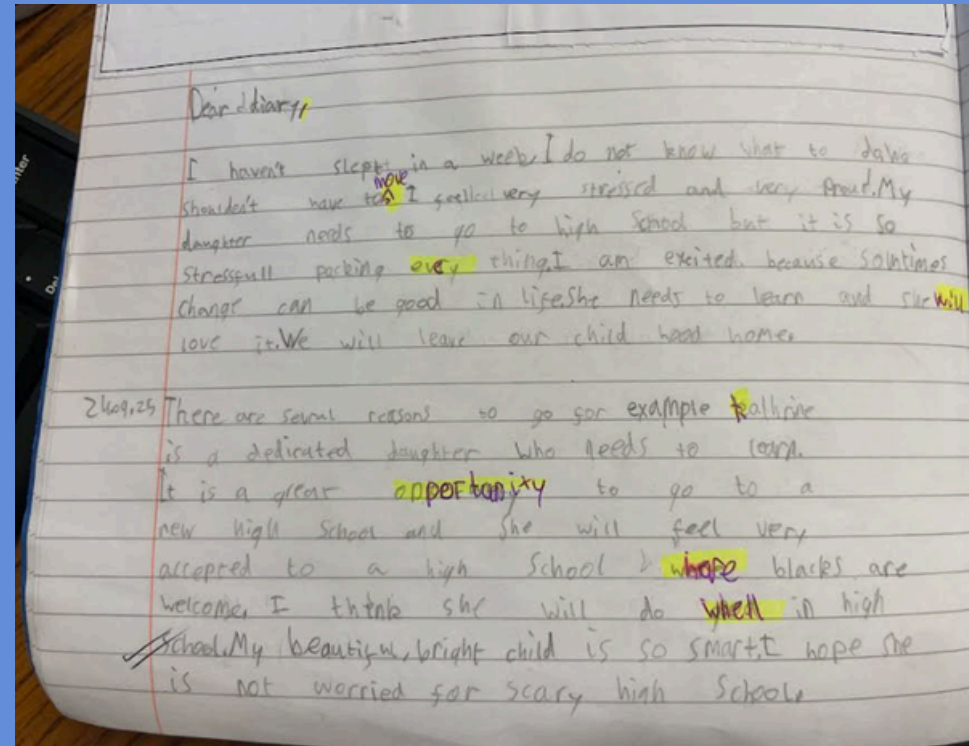 Dear ddiary,
I haven't slept in a week, I do not know what to do. We
shoulden't have to move I feelled very stressed and very proud. My
daughter needs to go to high school but it is so
stressfull packing every thing. I am exited. because somtimes
change can be good in life. She needs to learn and she will
love it. We will leave our child hood home.
24.09.25 There are several reasons to go for example kathrine
is a dedicated daughter who needs to learn.
It is a great oppertonity to go to a
new high school and she will feel very
accepted to a high school whope blacks are
welcome. I think she will do whell in high
school. My beautiful, bright child is so smart. I hope she
is not worried for scary high school.
Del